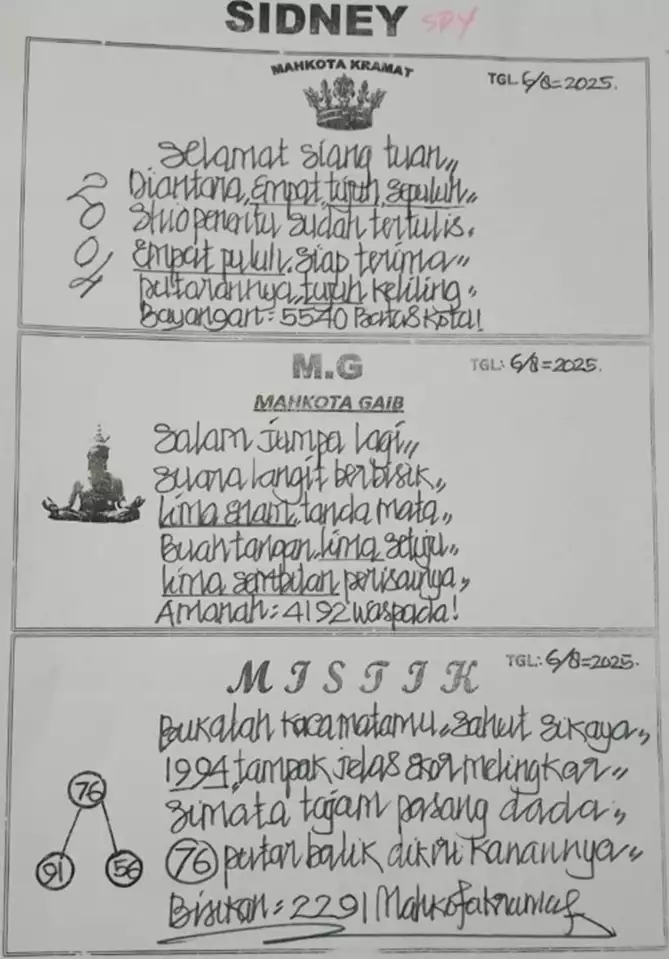 SIDNEY SDY
MAHKOTA KRAMAT
TGL 6/8=2025.
Selamat siang tuan,,
Diantara, Empat, tujuh, sepuluh,,
2
0
0
4
sudah tertulis.
Empat puluh. siap terima,,
putarannya, tujuh keliling,
Bayangan = 5540 Batas Kota!
M.G
TGL: 6/8=2025.
MAHKOTA GAIB
Salam jumpa lagi,,
suara langit berbisik,,
lima enam, tanda mata,,
Buah tangan, lima setuju,,
lima sembilan perisainya,
Amanah: 4192 waspada!
MISTIK
TGL: 6/8=2025.
Bukalah kacamatamu, sahut sikaya,,
1994, tampak jelas ekor melingkar,,
simata tajam pasang dada,,
76 putar balik dikiri kanannya,,
76
91
56
Bisikan = 2291 Mahkota